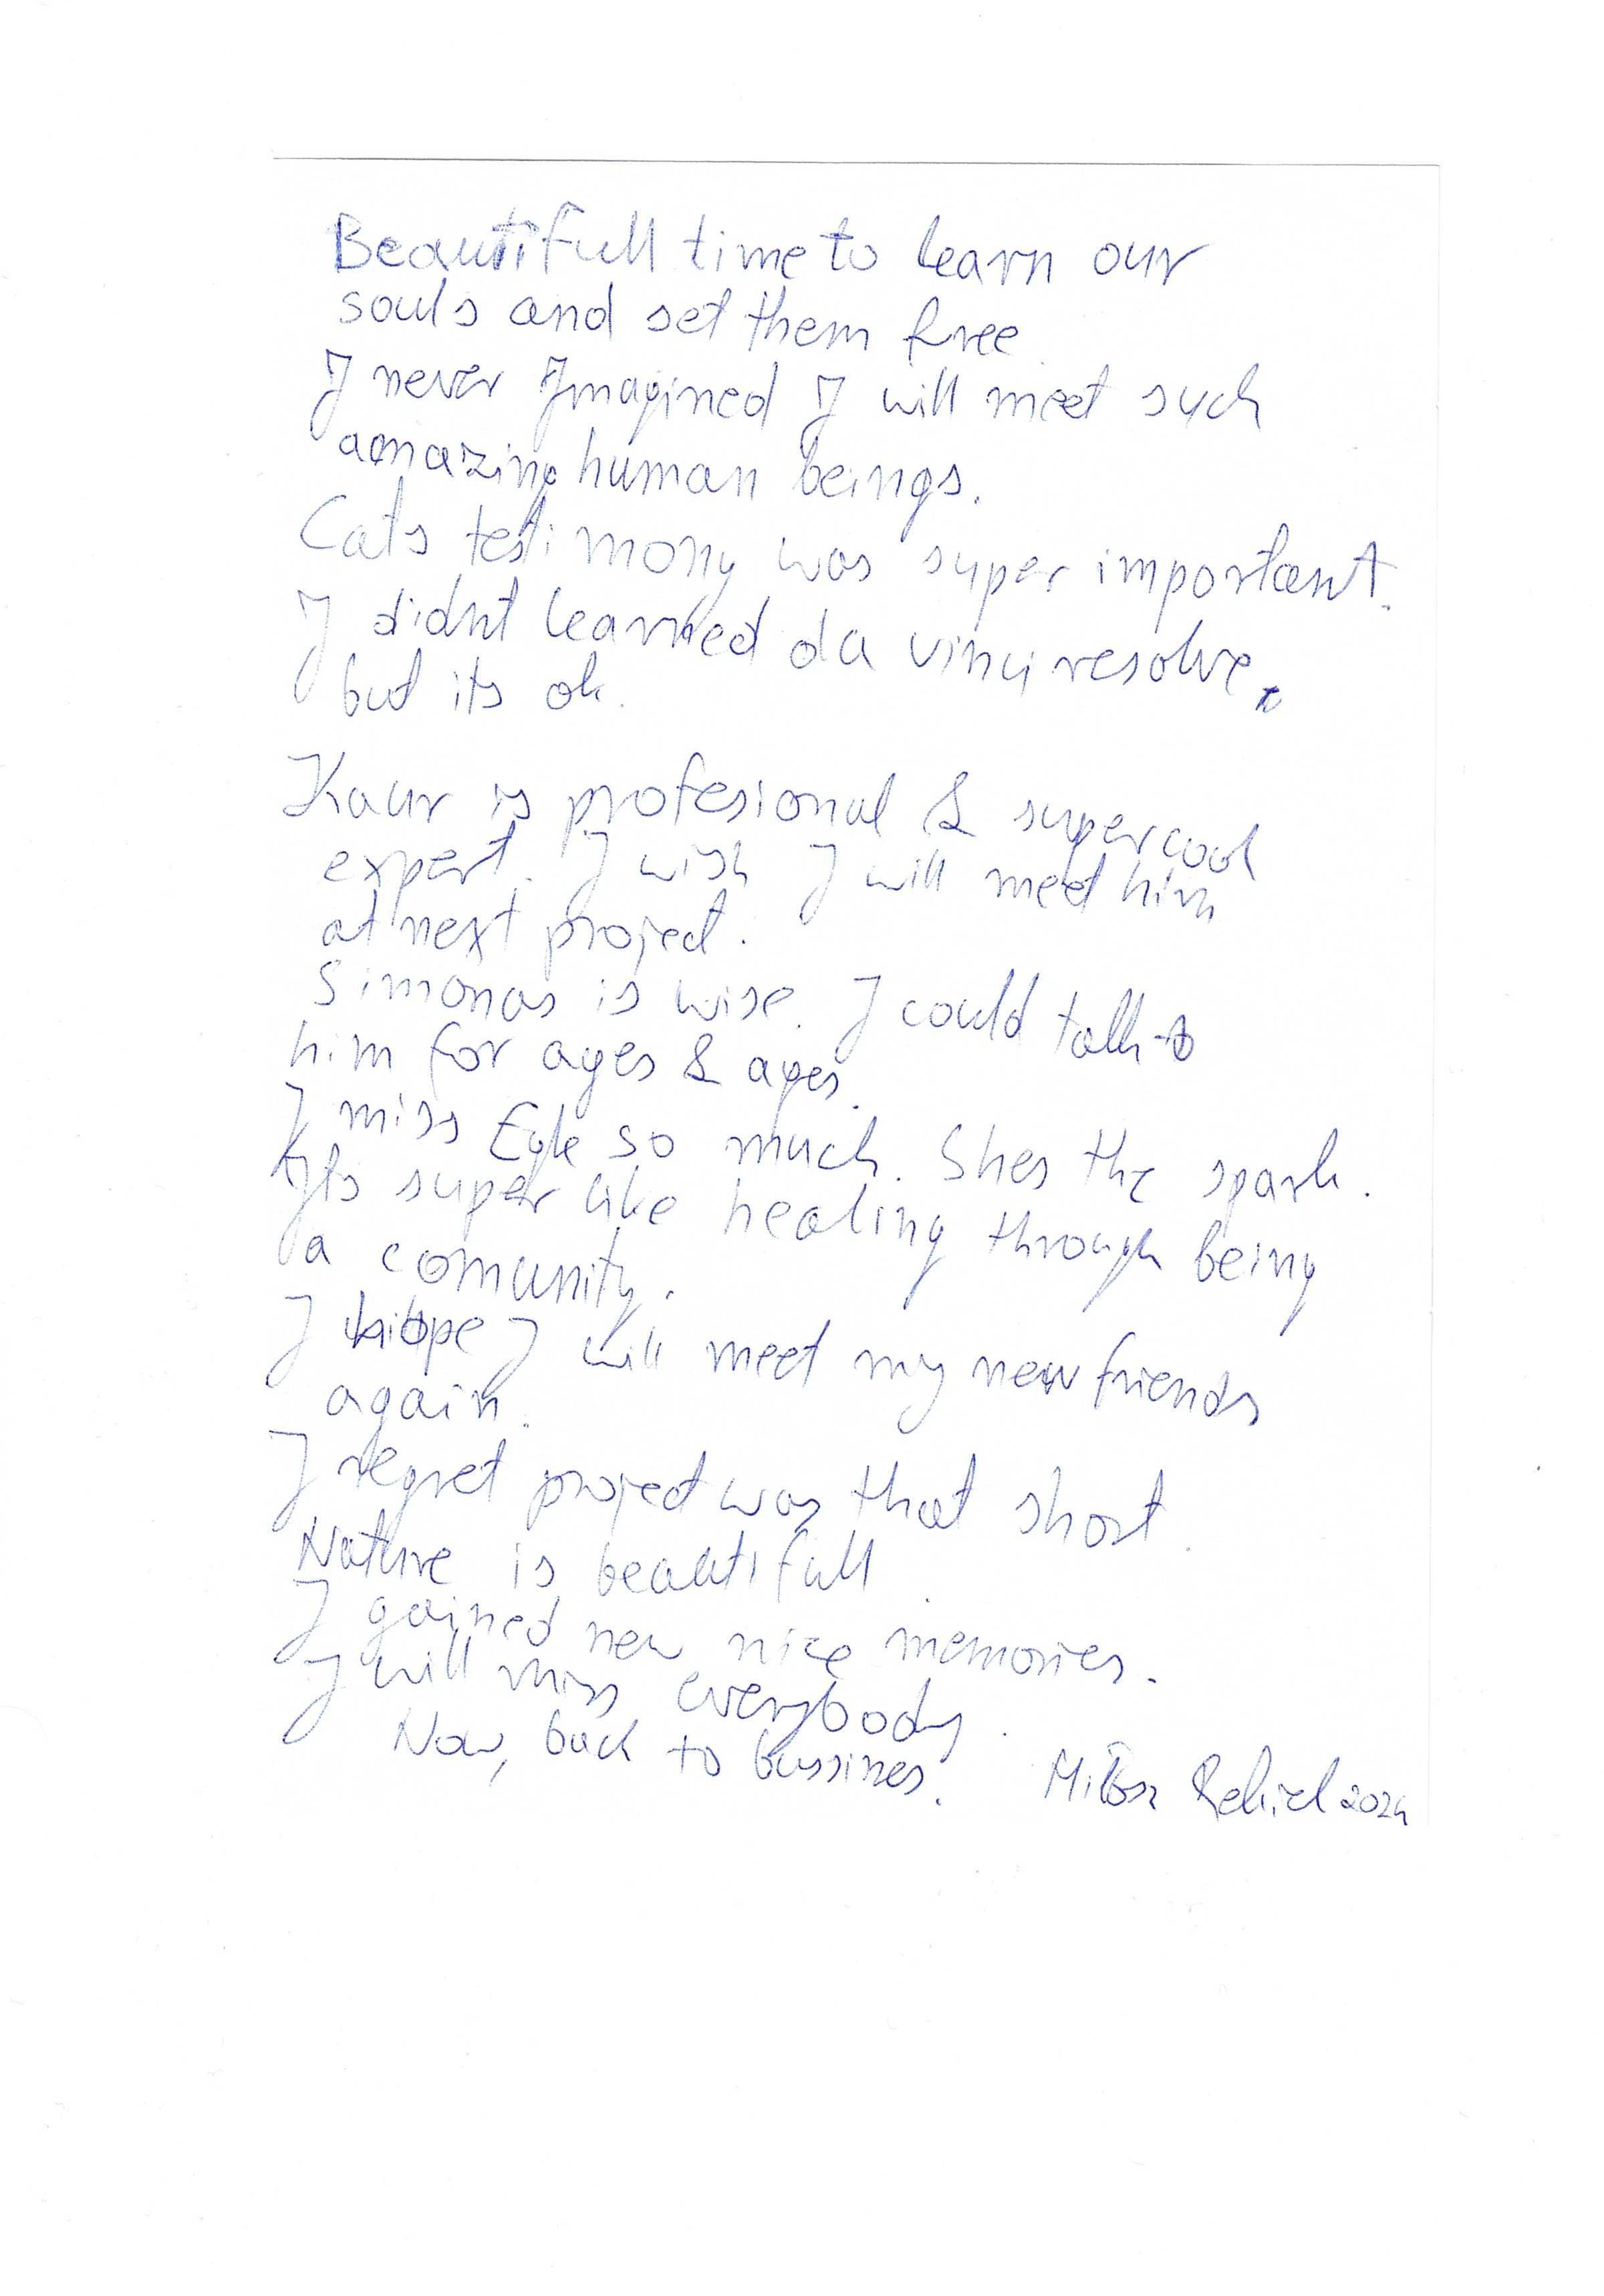 Beautifull time to learn our
souls and set them free
I never Imagined I will meet such
amazing human beings.
Cats testimony was super important.
I didnt learned da vinci resolve,
but its ok.
Kaur is profesional & supercool
expert. I wish I will meet him
at next project.
Simonas is wise. I could talk to
him for ages & ages.
I miss Egle so much. Shes the spark.
Its super like healing through being
a comunity.
I hope I will meet my new friends
again.
I regret project was that short.
Nature is beautifull
I gained new nice memories.
I will miss everybody.
Now, back to bussines. Miłosz 2024